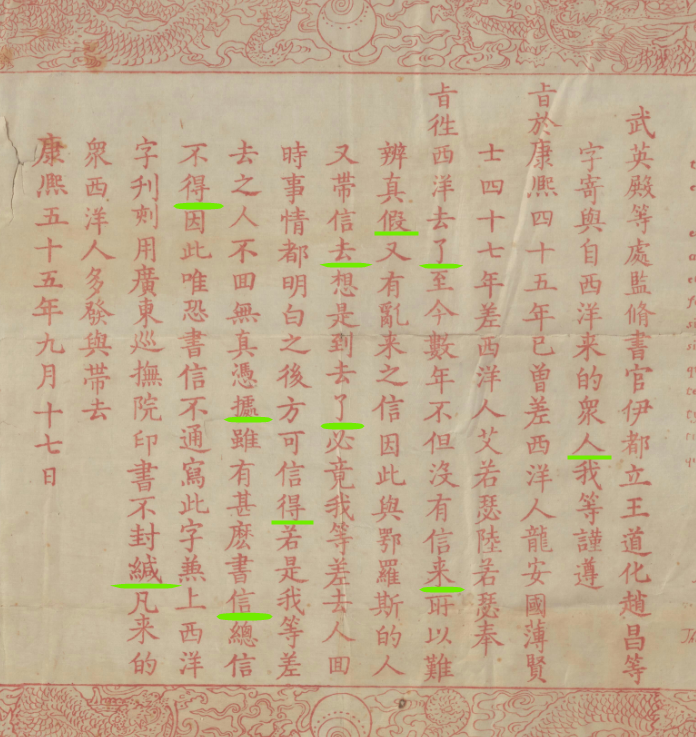 武英殿等處監脩書官伊都立王道化趙昌等
字寄與自西洋来的衆人我等謹遵
旨於康熙四十五年已曾差西洋人龍安國薄賢
士四十七年差西洋人艾若瑟陸若瑟奉
旨徃西洋去了至今數年不但沒有信来所以難
辨真假又有亂来之信因此與鄂羅斯的人
又帶信去想是到去了必竟我等差去人囬
時事情都明白之後方可信得若是我等差
去之人不囬無真憑據雖有甚麽書信總信
不得因此唯恐書信不通寫此字兼上西洋
字刋刻用廣東巡撫院印書不封緘凡来的
衆西洋人多發與帶去
康熙五十五年九月十七日